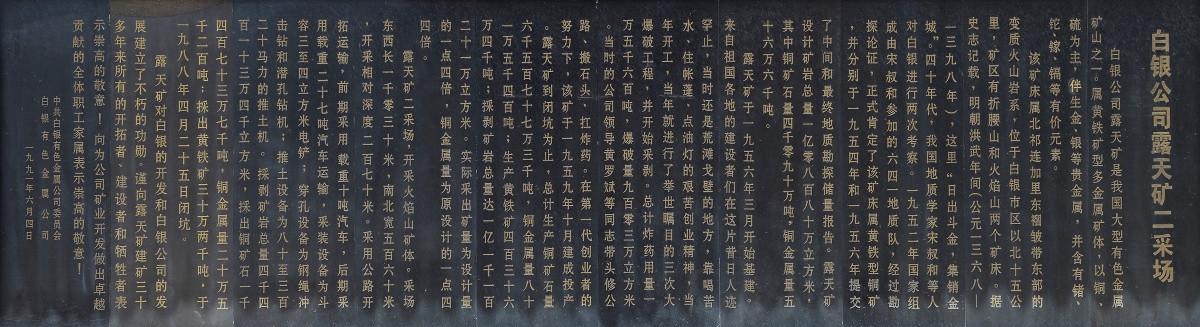 白银公司露天矿二采场
白银公司露天矿是我国大型有色金属
矿山之一。属黄铁矿型多金属矿体，以铜、
硫为主，伴生金、银等贵金属，并含有锗、
铊、镓、镉等有价元素。
该矿床属北祁连加里东褶皱带东部的
变质火山岩系，位于白银市区以北十五公
里，矿区有折腰山和火焰山两个矿床。据
史志记载，明朝洪武年间公元一三六八—
一三九八年），这里“日出斗金，集销金
城。”四十年代，我国地质学家宋叔和等人
对白银进行两次考察。一九五二年国家组
成由宋叔和参加的六四一地质队，经过勘
探论证，正式肯定了该矿床属黄铁型铜矿
，并分别于一九五四年和一九五六年提交
了中间和最终地质勘探储量报告。露天矿
设计矿岩总量一亿零八百八十万立方米，
其中铜矿石量四千零九十万吨。铜金属量五
十六万六千吨。
露天矿于一九五六年三月开始基建。
来自祖国各地的建设者们在这片昔日人迹
罕止，当时还是荒滩戈壁的地方，靠喝苦
水、住帐蓬、点油灯的艰苦创业精神，当
年开工，当年就进行了举世瞩目的三次大
爆破工程，并开始采剥。总计炸药用量一
万五千六百吨，爆破量九百零三万立方米
。当时的公司领导黄罗斌等同志带头修公
路、搬石头，扛炸药。在第一代创业者的
努力下，该矿于一九五九年十月建成投产
。露天矿到闭坑为止，总计生产铜矿石量
六千五百七十七万三千吨，铜金属量八十
一万五千四百吨；生产黄铁矿四百三十六
万四千吨；采剥矿岩总量达一亿一千一百
二十一万立方米。实际采出矿量为设计量
的一点四倍，铜金属量为原设计的一点四
四倍。
露天矿二采场，开采火焰山矿体。采场
东西长一千零三十米，南北宽五百六十米
，开采相对深度二百七十米。采用公路开
拓运输，前期采用载重十吨汽车，后期采
用载重二十七吨汽车运输，采装设备为斗
容三至四立方米电铲；穿孔设备为钢绳冲
击钻和潜孔钻机；推土设备为八十至三百
二十马力的推土机。采剥矿岩总量四千四
百一十三万四千立方米，采出铜矿石一千
四百七十三万七千吨，铜金属量二十万五
千二百吨；采出黄铁矿三十万两千吨，于
一九八八年四月二十五日闭坑。
露天矿对白银的开发和白银公司的发
展建立了不朽的功勋。谨向露天矿建矿三十
多年来所有的开拓者、建设者和牺牲者表
示崇高的敬意！向为公司矿业开发做出卓越
贡献的全体职工家属表示崇高的敬意！
中共白银有色金属公司委员会
白银有色金属公司
一九九一年六月四日